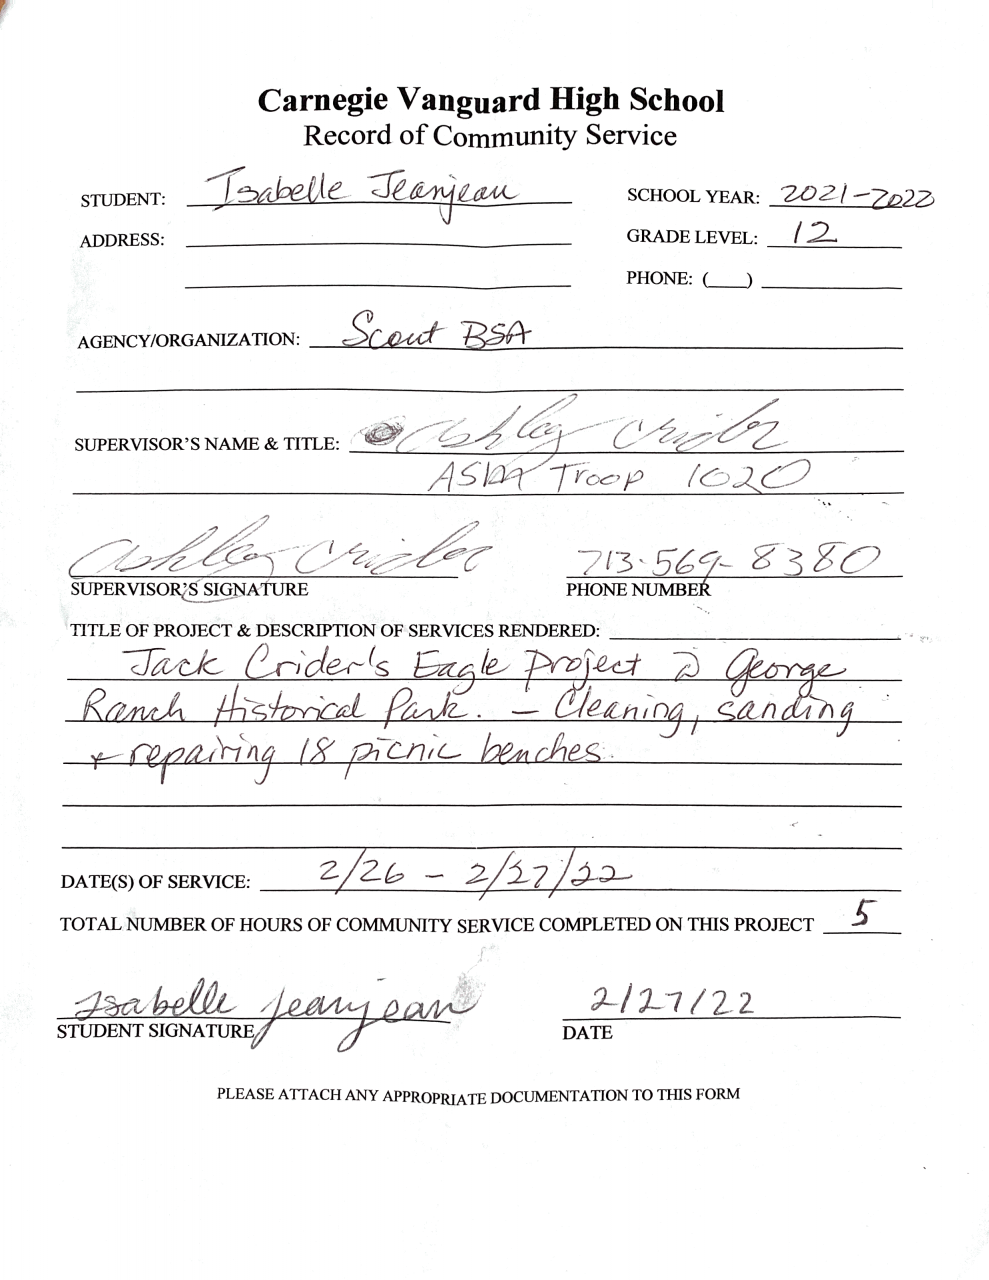 Carnegie Vanguard High School
Record of Community Service
STUDENT: Isabelle Jeanjean
SCHOOL YEAR: 2021-2022
ADDRESS:
GRADE LEVEL: 12
PHONE: (   )
AGENCY/ORGANIZATION: Scout BSA
SUPERVISOR'S NAME & TITLE: Ashley Crider
ASM Troop 1020
Ashley Crider
713-569-8380
SUPERVISOR'S SIGNATURE
PHONE NUMBER
TITLE OF PROJECT & DESCRIPTION OF SERVICES RENDERED:
Jack Crider's Eagle Project @ George
Ranch Historical Park. - Cleaning, sanding
+ repairing 18 picnic benches.
DATE(S) OF SERVICE: 2/26 - 2/27/22
TOTAL NUMBER OF HOURS OF COMMUNITY SERVICE COMPLETED ON THIS PROJECT 5
Isabelle Jeanjean
2/27/22
STUDENT SIGNATURE
DATE
PLEASE ATTACH ANY APPROPRIATE DOCUMENTATION TO THIS FORM